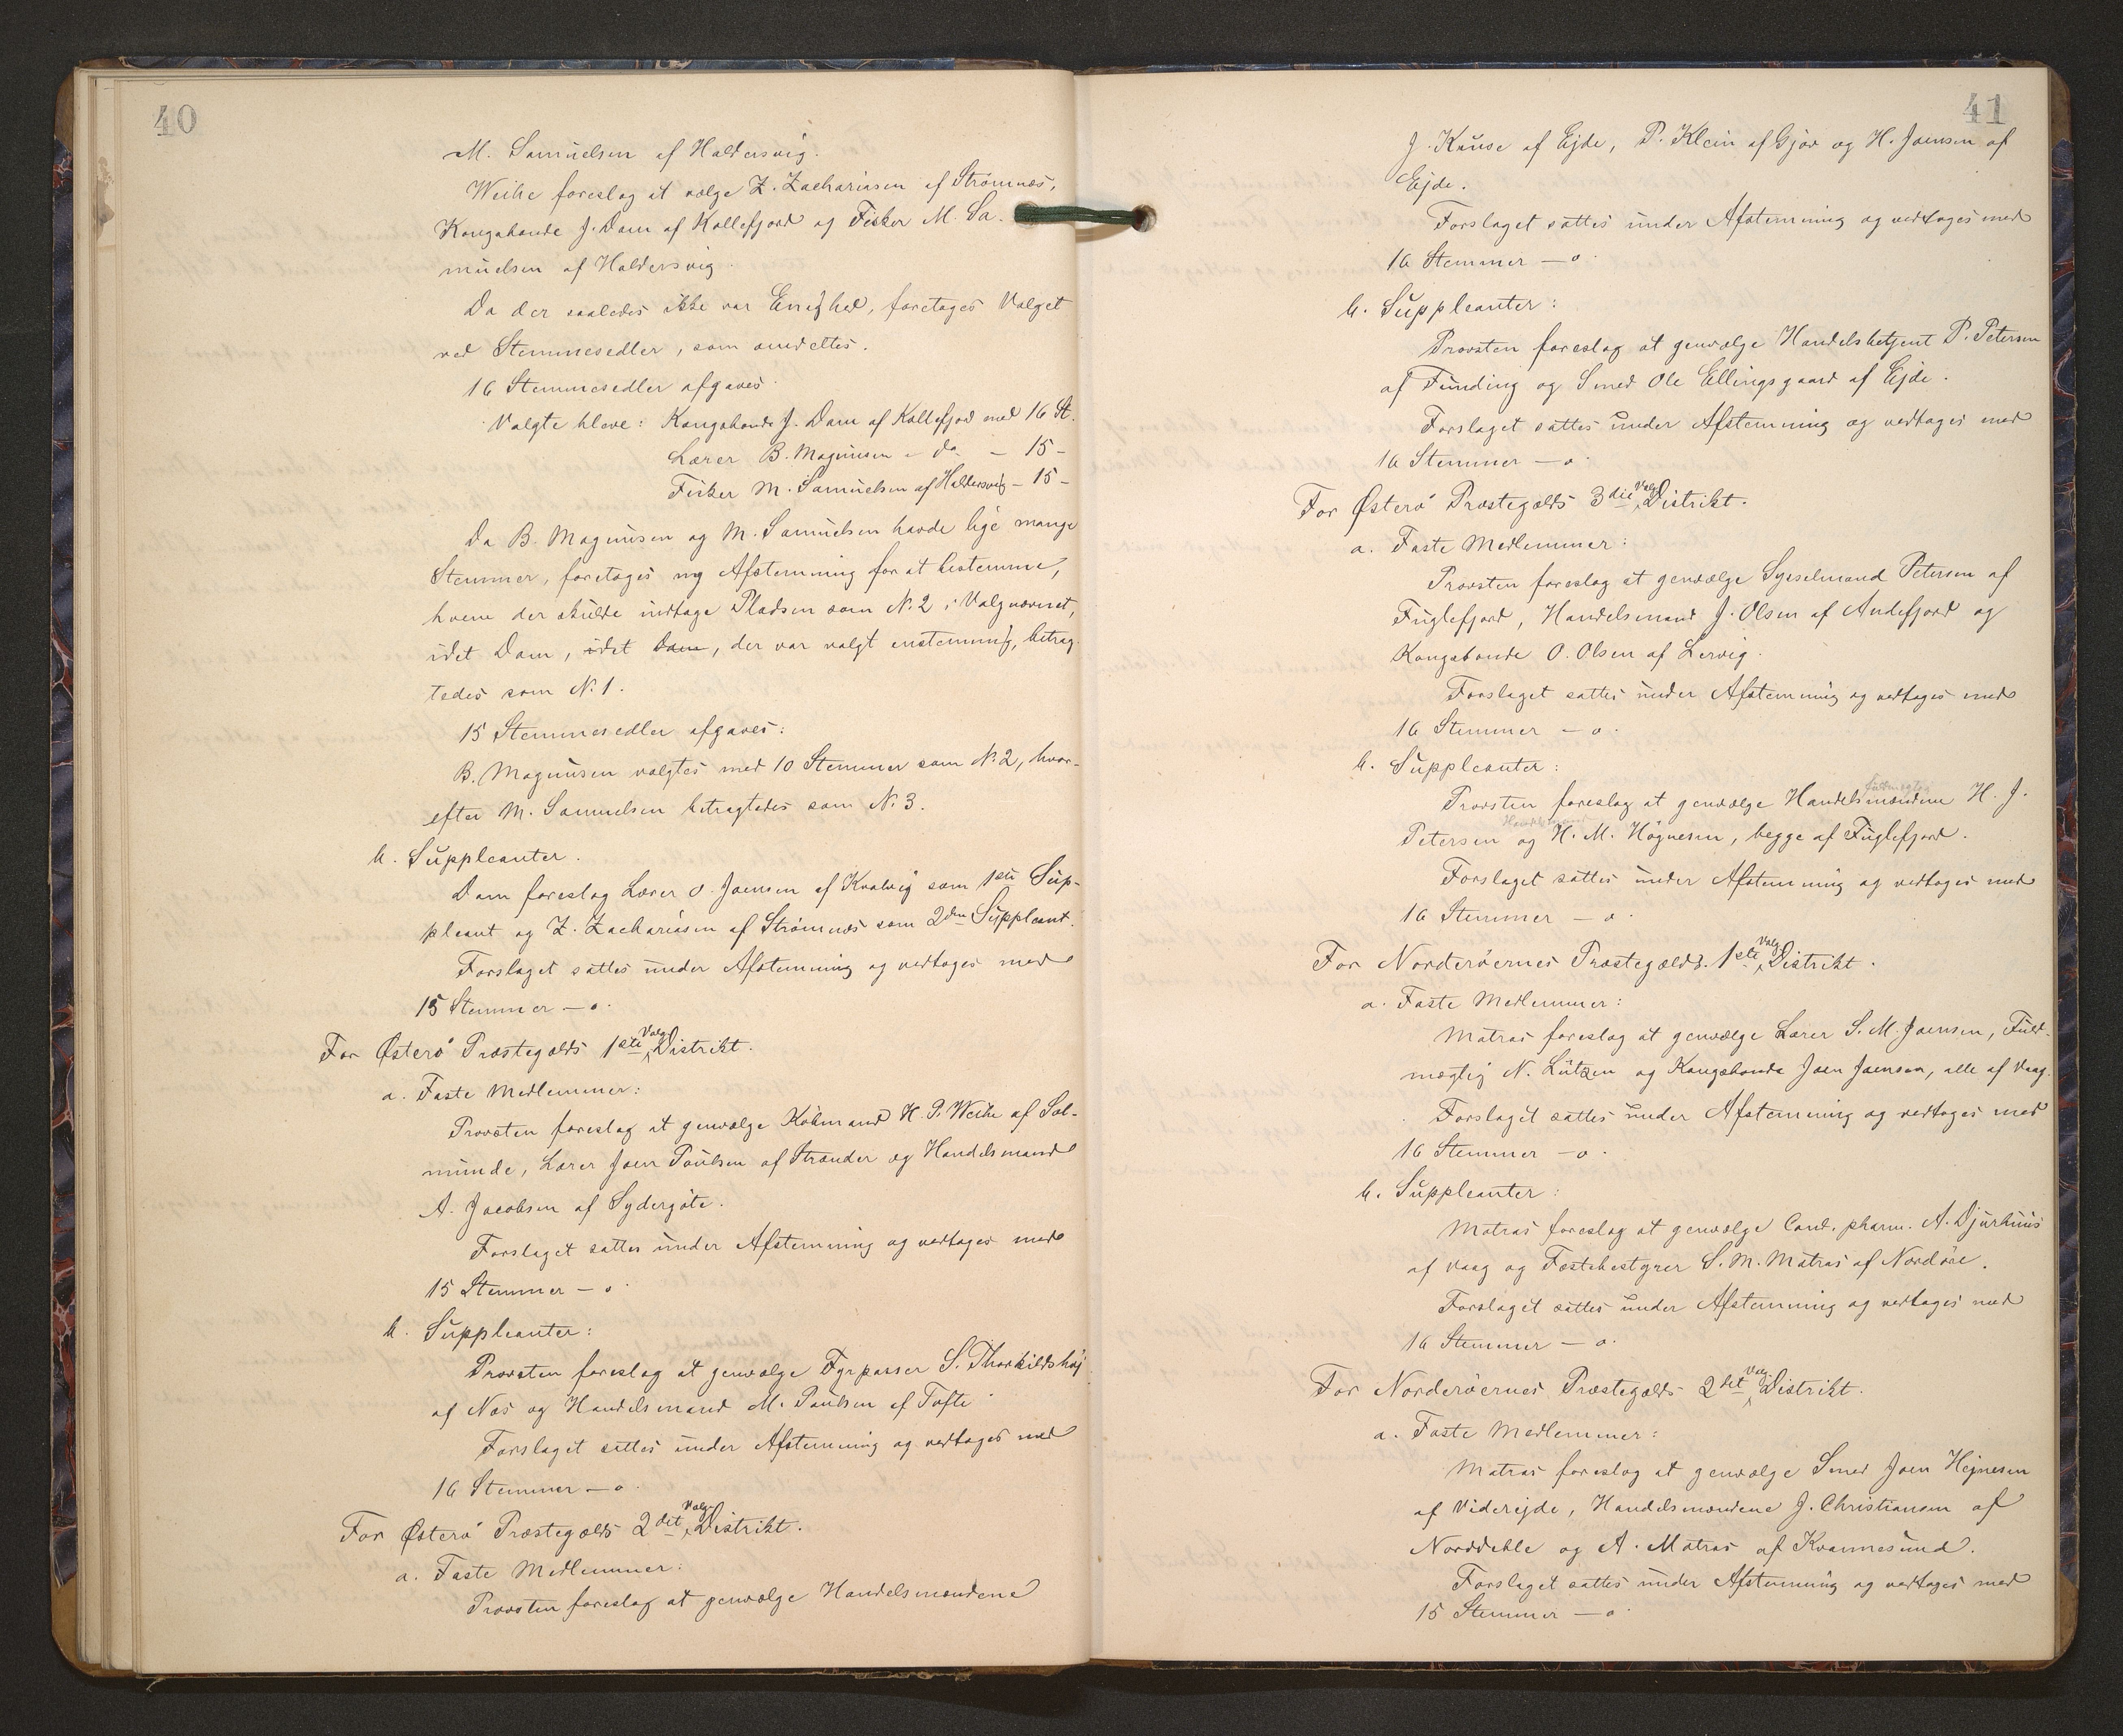 40
M. Samuelsen af Haldersvig.
Weihe foreslog at vælge Z. Zachariasen af Strømnæs,
Kongsbonde J. Dam af Kollefjord og Fisker M. Sa-
muelsen af Haldersvig.
Da der saaledes ikke var Enighed, foretoges Valget
ved Stemmesedler, som omdeltes.
16 Stemmesedler afgaves.
Valgte bleve: Kongsbonde J. Dam af Kollefjod med 16 St.
Lærer B. Magnusen - do - 15 -
Fisker M. Samuelsen af Haldersvig - 15 -
Da B. Magnusen og M. Samuelsen havde lige mange
Stemmer, foretoges ny Afstemning for at bestemme,
hvem der skulde indtage Pladsen som N. 2 i Valgnævnet,
idet Dam, idet Dam, der var valgt enstemmig, betrag-
tedes som N. 1.
15 Stemmesedler afgaves:
B. Magnusen valgtes med 10 Stemmer som N. 2, hvor-
efter M. Samuelsen betragtedes som N. 3.
b. Suppleanter.
Dam foreslog Lærer O. Joensen af Kvalvig som 1ste Sup-
pleant og Z. Zachariasen af Strømnæs som 2den Suppleant.
Forslaget sattes under Afstemning og vedtoges med
15 Stemmer — o.
For Østerø Præstegælds 1ste Valg Distrikt.
a. Faste Medlemmer:
Provsten foreslog at genvælge Købmand H. P. Weihe af Sol-
munde, Lærer Joen Poulsen af Strænder og Handelsmand
A. Jacobsen af Sydergøte.
Forslaget sattes under Afstemning og vedtoges med
15 Stemmer — o
b. Suppleanter:
Provsten foreslog at genvælge Fyrpasser S. Thorkildshøj
af Næs og Handelsmand M. Poulsen af Tofte.
Forslaget sattes under Afstemning og vedtoges med
16 Stemmer — o.
For Østerø Præstegælds 2det Valg Distrikt.
a. Faste Medlemmer:
Provsten foreslog at genvælge Handelsmændene
41
J. Kruse af Ejde, P. Klein af Gjov og H. Joensen af
Ejde.
Forslaget sattes under Afstemning og vedtoges med
16 Stemmer — o.
b. Suppleanter:
Provsten foreslog at genvælge Handelsbetjent P. Petersen
af Funding og Smed Ole Ellingsgaard af Ejde.
Forslaget sattes under Afstemning og vedtoges med
16 Stemmer — o.
For Østerø Præstegælds 3die Valg Distrikt.
a. Faste Medlemmer:
Provsten foreslog at genvælge Sysselmand Petersen af
Fuglefjord, Handelsmand J. Olsen af Andefjord og
Kongsbonde O. Olsen af Lervig.
Forslaget sattes under Afstemning og vedtoges med
16 Stemmer — o.
b. Suppleanter:
Fuldmægtig
Provsten foreslog at genvælge Handelsmændene H. J.
Handelsmand
Petersen og H. M. Høgnesen, begge af Fuglefjord.
Forslaget sattes under Afstemning og vedtoges med
16 Stemmer — o.
For Norderøernes Præstegælds 1ste Valg Distrikt.
a. Faste Medlemmer:
Matras foreslog at genvælge Lærer S. M. Joensen, Fuld-
mægtig N. Lützen og Kongsbonde Joen Joensen, alle af Vaag.
Forslaget sattes under Afstemning og vedtoges med
16 Stemmer — o.
b. Suppleanter:
Matras foreslog at genvælge Cand. pharm. A. Djurhuus
af Vaag og Postbestyrer S. M. Matras af Nordøre.
Forslaget sattes under Afstemning og vedtoges med
16 Stemmer — o.
For Norderøernes Præstegælds 2det Valg Distrikt.
a. Faste Medlemmer:
Matras foreslog at genvælge Smed Joen Hejnesen
af Viderejde, Handelsmændene J. Christiansen af
Norddeble og A. Matras af Kvannesund.
Forslaget sattes under Afstemning og vedtoges med
15 Stemmer — o.